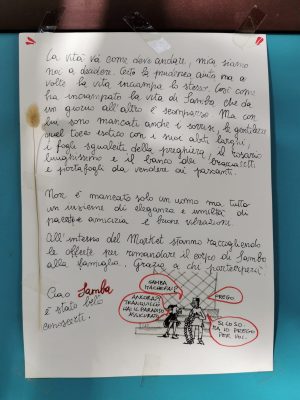 La vita va come deve andare, mica siamo
noi a decidere. Certo la prudenza aiuta ma a
volte la vita inciampa lo stesso. Così come
ha inciampato la vita di Samba che da
un giorno all'altro è scomparso. Ma con
lui sono mancati anche i sorrisi, la gentilezza
quel tocco esotico con i suoi abiti larghi,
i fogli squalciti della preghiera, il rosario
lunghissimo e il banco dei braccialetti
e portafogli da vendere ai passanti.
Non è mancato solo un uomo ma tutto
un insieme di eleganza e umiltà di
pace e amicizia e buone vibrazioni.
All'interno del Market stanno raccogliendo
le offerte per rimandare il corpo di Samba
alla famiglia. Grazie a chi parteciperà
Ciao Samba
è stato bello
conoscerti.
SAMBA
MA CHE FAI?
PREGO
ANCORA?
TRANQUILLO
HAI IL PARADISO
ASSICURATO
SI LO SO
MA IO PREGO
PER VOI.